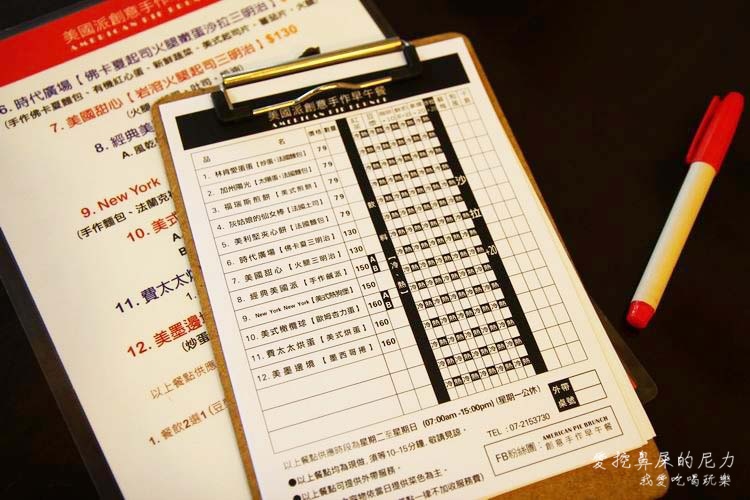 美國派創意手作
AMERICAN PIE BRUNCH
6. 時代廣場【佛卡夏起司火腿嫩蛋沙拉三明治】
(手作佛卡夏麵包、有機紅心蛋、新鮮蔬菜、美式起司片、薯菇片、火腿
7. 美國甜心【岩溶火腿起司三明治】$130
8. 經典美
A. 風乾
9. New York
(手作麵包、法蘭克
10. 美式
11. 費太太烘
12. 美墨邊
(炒蛋
以上餐點供應
1. 餐飲2選1 (豆
美國派創意手作早午餐
AMERICAN PIE BRUNCH
品 名 價格 數量
1. 林肯愛蛋蛋【炒蛋+法國麵包】 79
2. 加州陽光【太陽蛋+法國麵包】 79
3. 福瑞斯煎餅【美式煎餅】 79
4. 灰姑娘的仙女棒【法國土司】 79
5. 美利堅夾心餅【法國麵包】 79
6. 時代廣場【佛卡夏三明治】 130
7. 美國甜心【火腿三明治】 130
8. 經典美國派【手作鹹派】 150 A B
9. New York New York【美式熱狗堡】 150
10. 美式橄欖球【歐姆杏力蛋】 160 A B
11. 費太太烘蛋【美式烘蛋】 160
12. 美墨邊境【墨西哥捲】 160
飲料【冷、熱】
沙拉 20
外帶
桌號
●以上餐點供應時段為星期二至星期日 (07:00am-15:00pm) (星期一公休)
●以上餐點均為現做, 須等10-15分鐘, 敬請見諒。
●以上餐點均可提供外帶服務。
TEL：07-2153730
AMERICAN PIE BRUNCH
FB粉絲團：創意手作早午餐
愛挖鼻屎的尼力
我愛吃喝玩樂